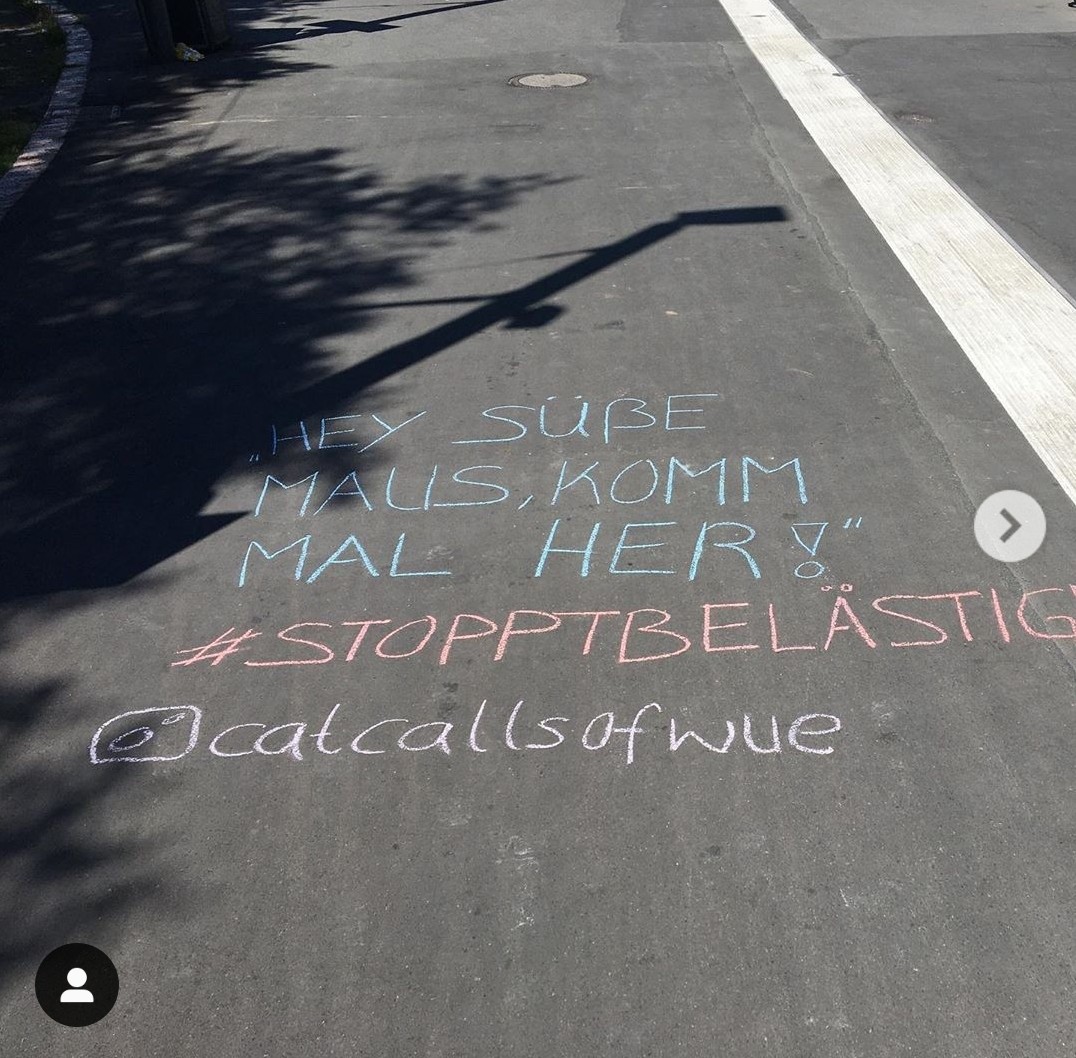 „HEY SÜßE
MAUS, KOMM
MAL HER!“
#STOPPTBELÄSTIG
@catcallsofwue